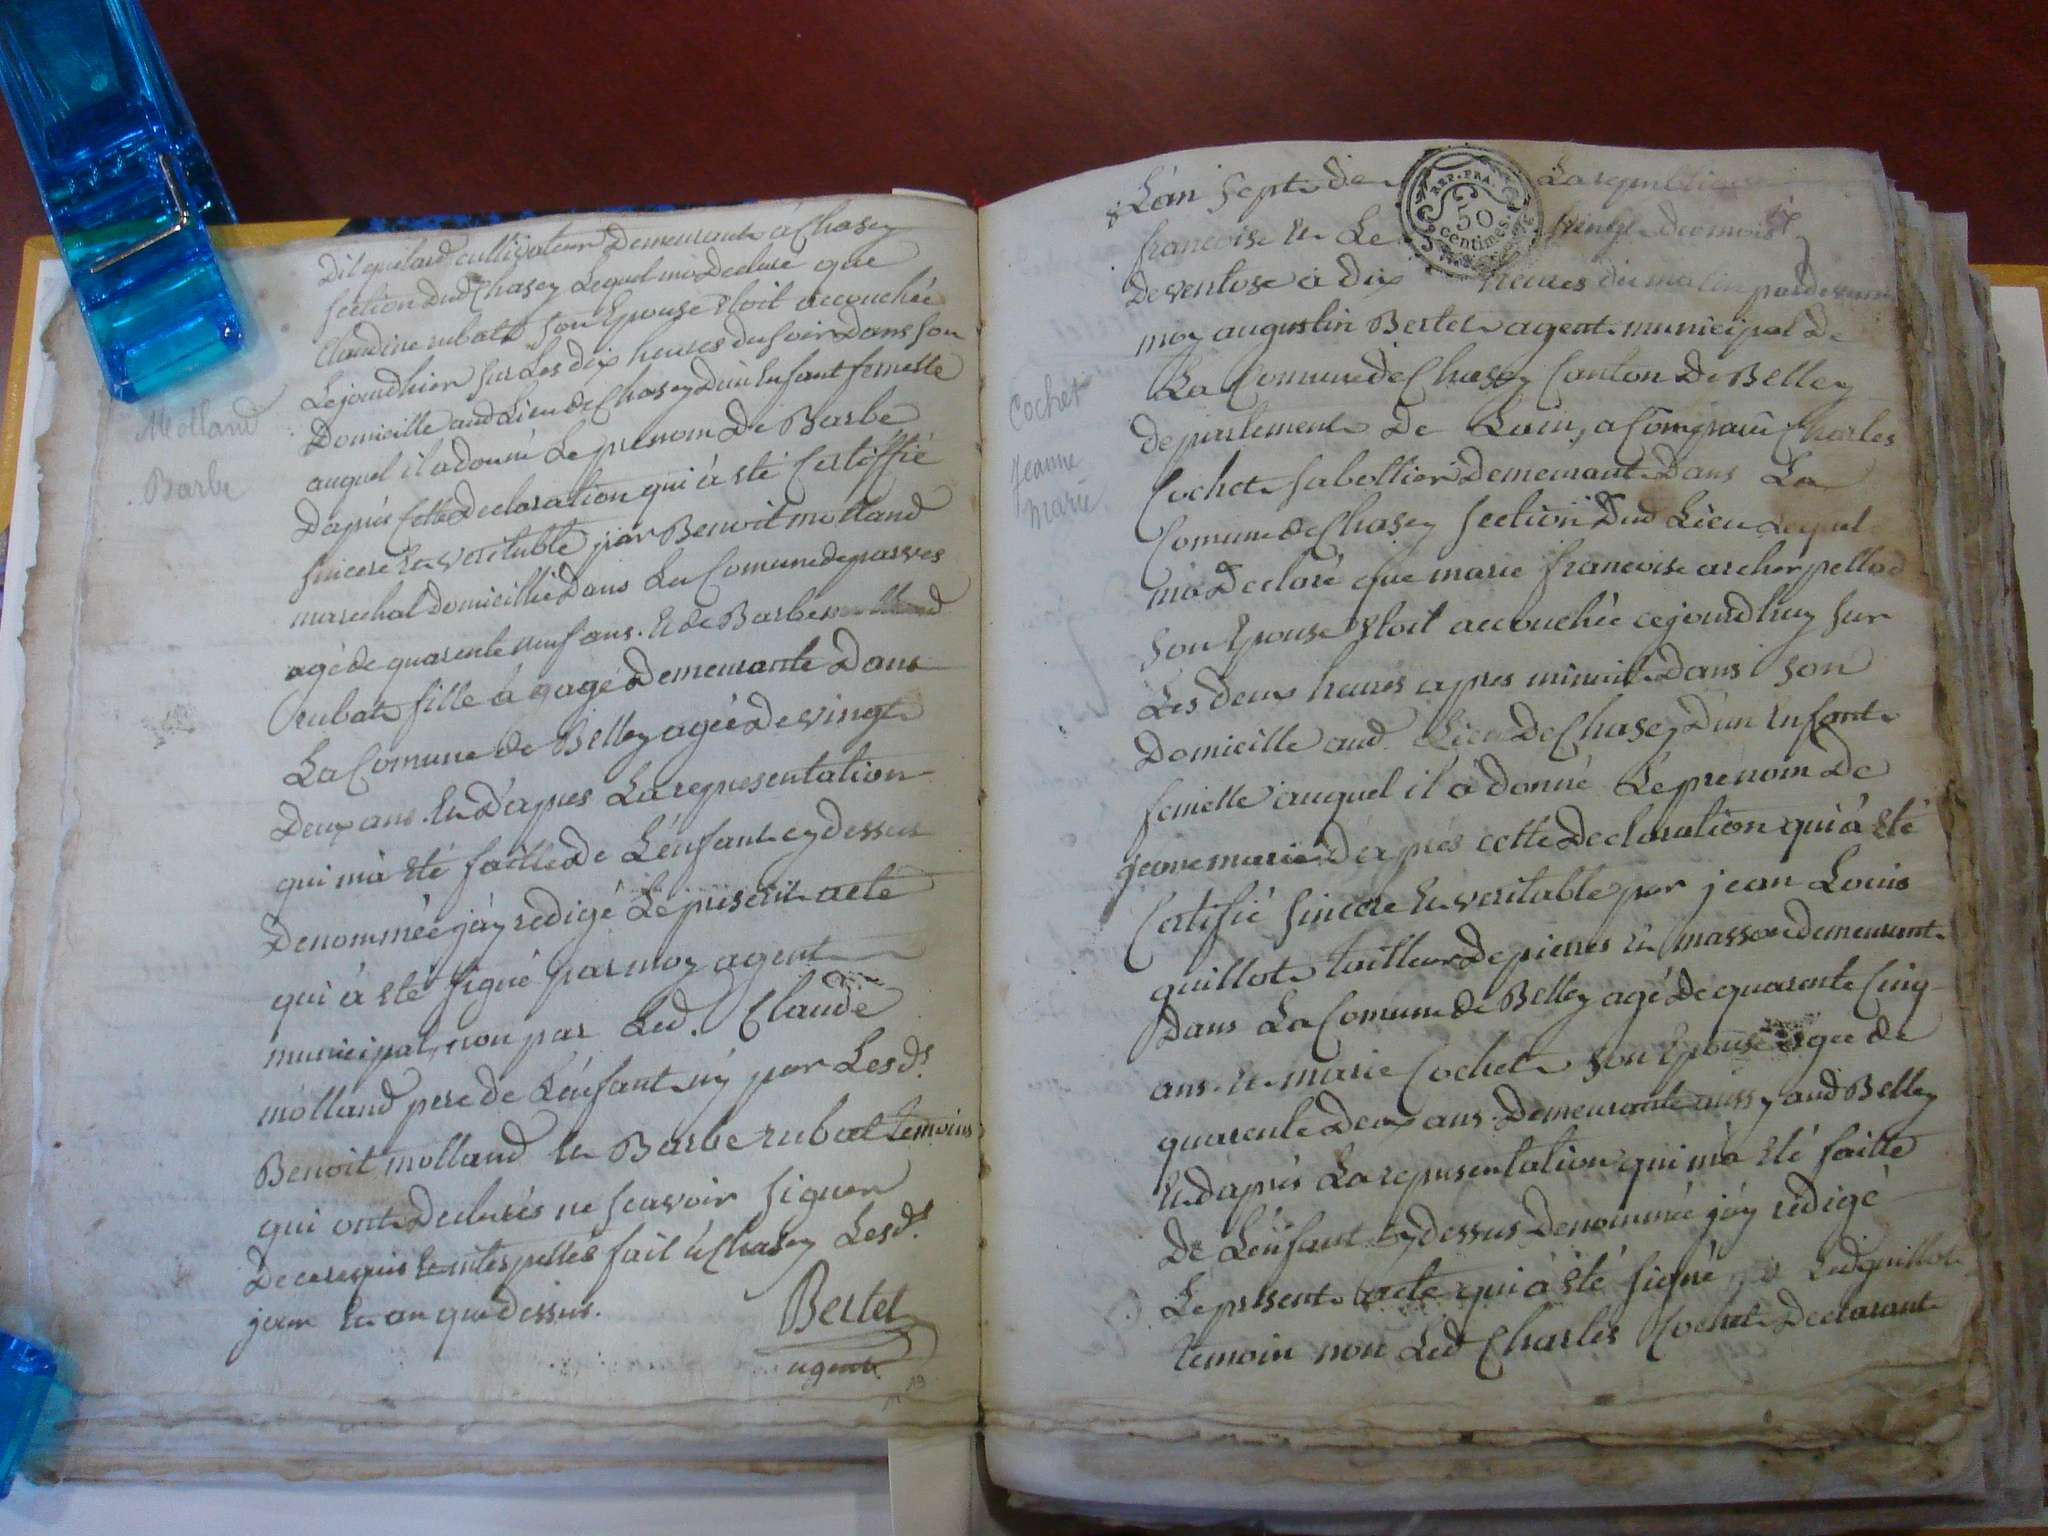 Molland
Barbe
cultivateur Demeurant à Chasey
section Dud Chasey Lequel ma Declaré que
Claudine rubat son Epouse Etoit accouchée
Lejourdhier sur Les dix heures du soir Dans son
Domicille aud Lieu de Chasey D'un Enfant femelle
auquel il a donné Le prenom De Barbe
Daprés Cette Declaration qui à Eté Certiffié
sincere Et veritable par Benoit molland
marechal domicillié Dans La Comune de parves
agé de quarente neuf ans. Et de Barbe
rubat fille à gagé Demeurante Dans
La Comune de Belley agée De vingt
Deux ans. Et D'apres La representation
qui m'a Eté faitte De L'enfant cy dessus
Denommée j'ay redigé Le present acte
qui à Eté signé par moy agent
municipal, non par Led. Claude
molland pere de L'enfant ny par Lesds.
Benoit molland Et Barbe rubat temoins
qui ont Declarés ne scavoir signer
De ce requis Et interpellés fait à Chasey Lesds.
jour Et an que dessus.
Bertet
agent
19
Cochet
Jeanne
Marie
L'an sept De La republique
REP. FRA.
50
centimes
francoise Et Le vingt Du mois
De ventose à dix heures du matin pardevant
moy augustin Bertet agent municipal De
La Comune de Chasey Canton De Belley
departement De Lain, a Comparu Charles
Cochet sabottier Demeurant Dans La
Comune de Chasey section Dud Lieu Lequel
m'a Declaré que marie francoise archer pellod
son Epouse Etoit accouchée cejourdhuy sur
Les deux heures apres minuit Dans son
Domicille aud. Lieu De Chasey D'un Enfant
femelle auquel il à donné Le prenom De
jeane marie D'après cette Declaration qui à Eté
Certifié sincere Et veritable par jean Louis
guillot tailleur De pierres Et masson demeurant
Dans La Comune de Belley agé De quarente Cinq
ans. Et marie Cochet son Epouse agée de
quarente Deux ans Demeurante aussy aud Belley
Et D'après La representation qui m'a Eté faitte
De L'enfant Cy dessus Denommée j'ay redigé
Le present acte qui à Eté signé Led guillot
temoin non Led Charles Cochet Declarant